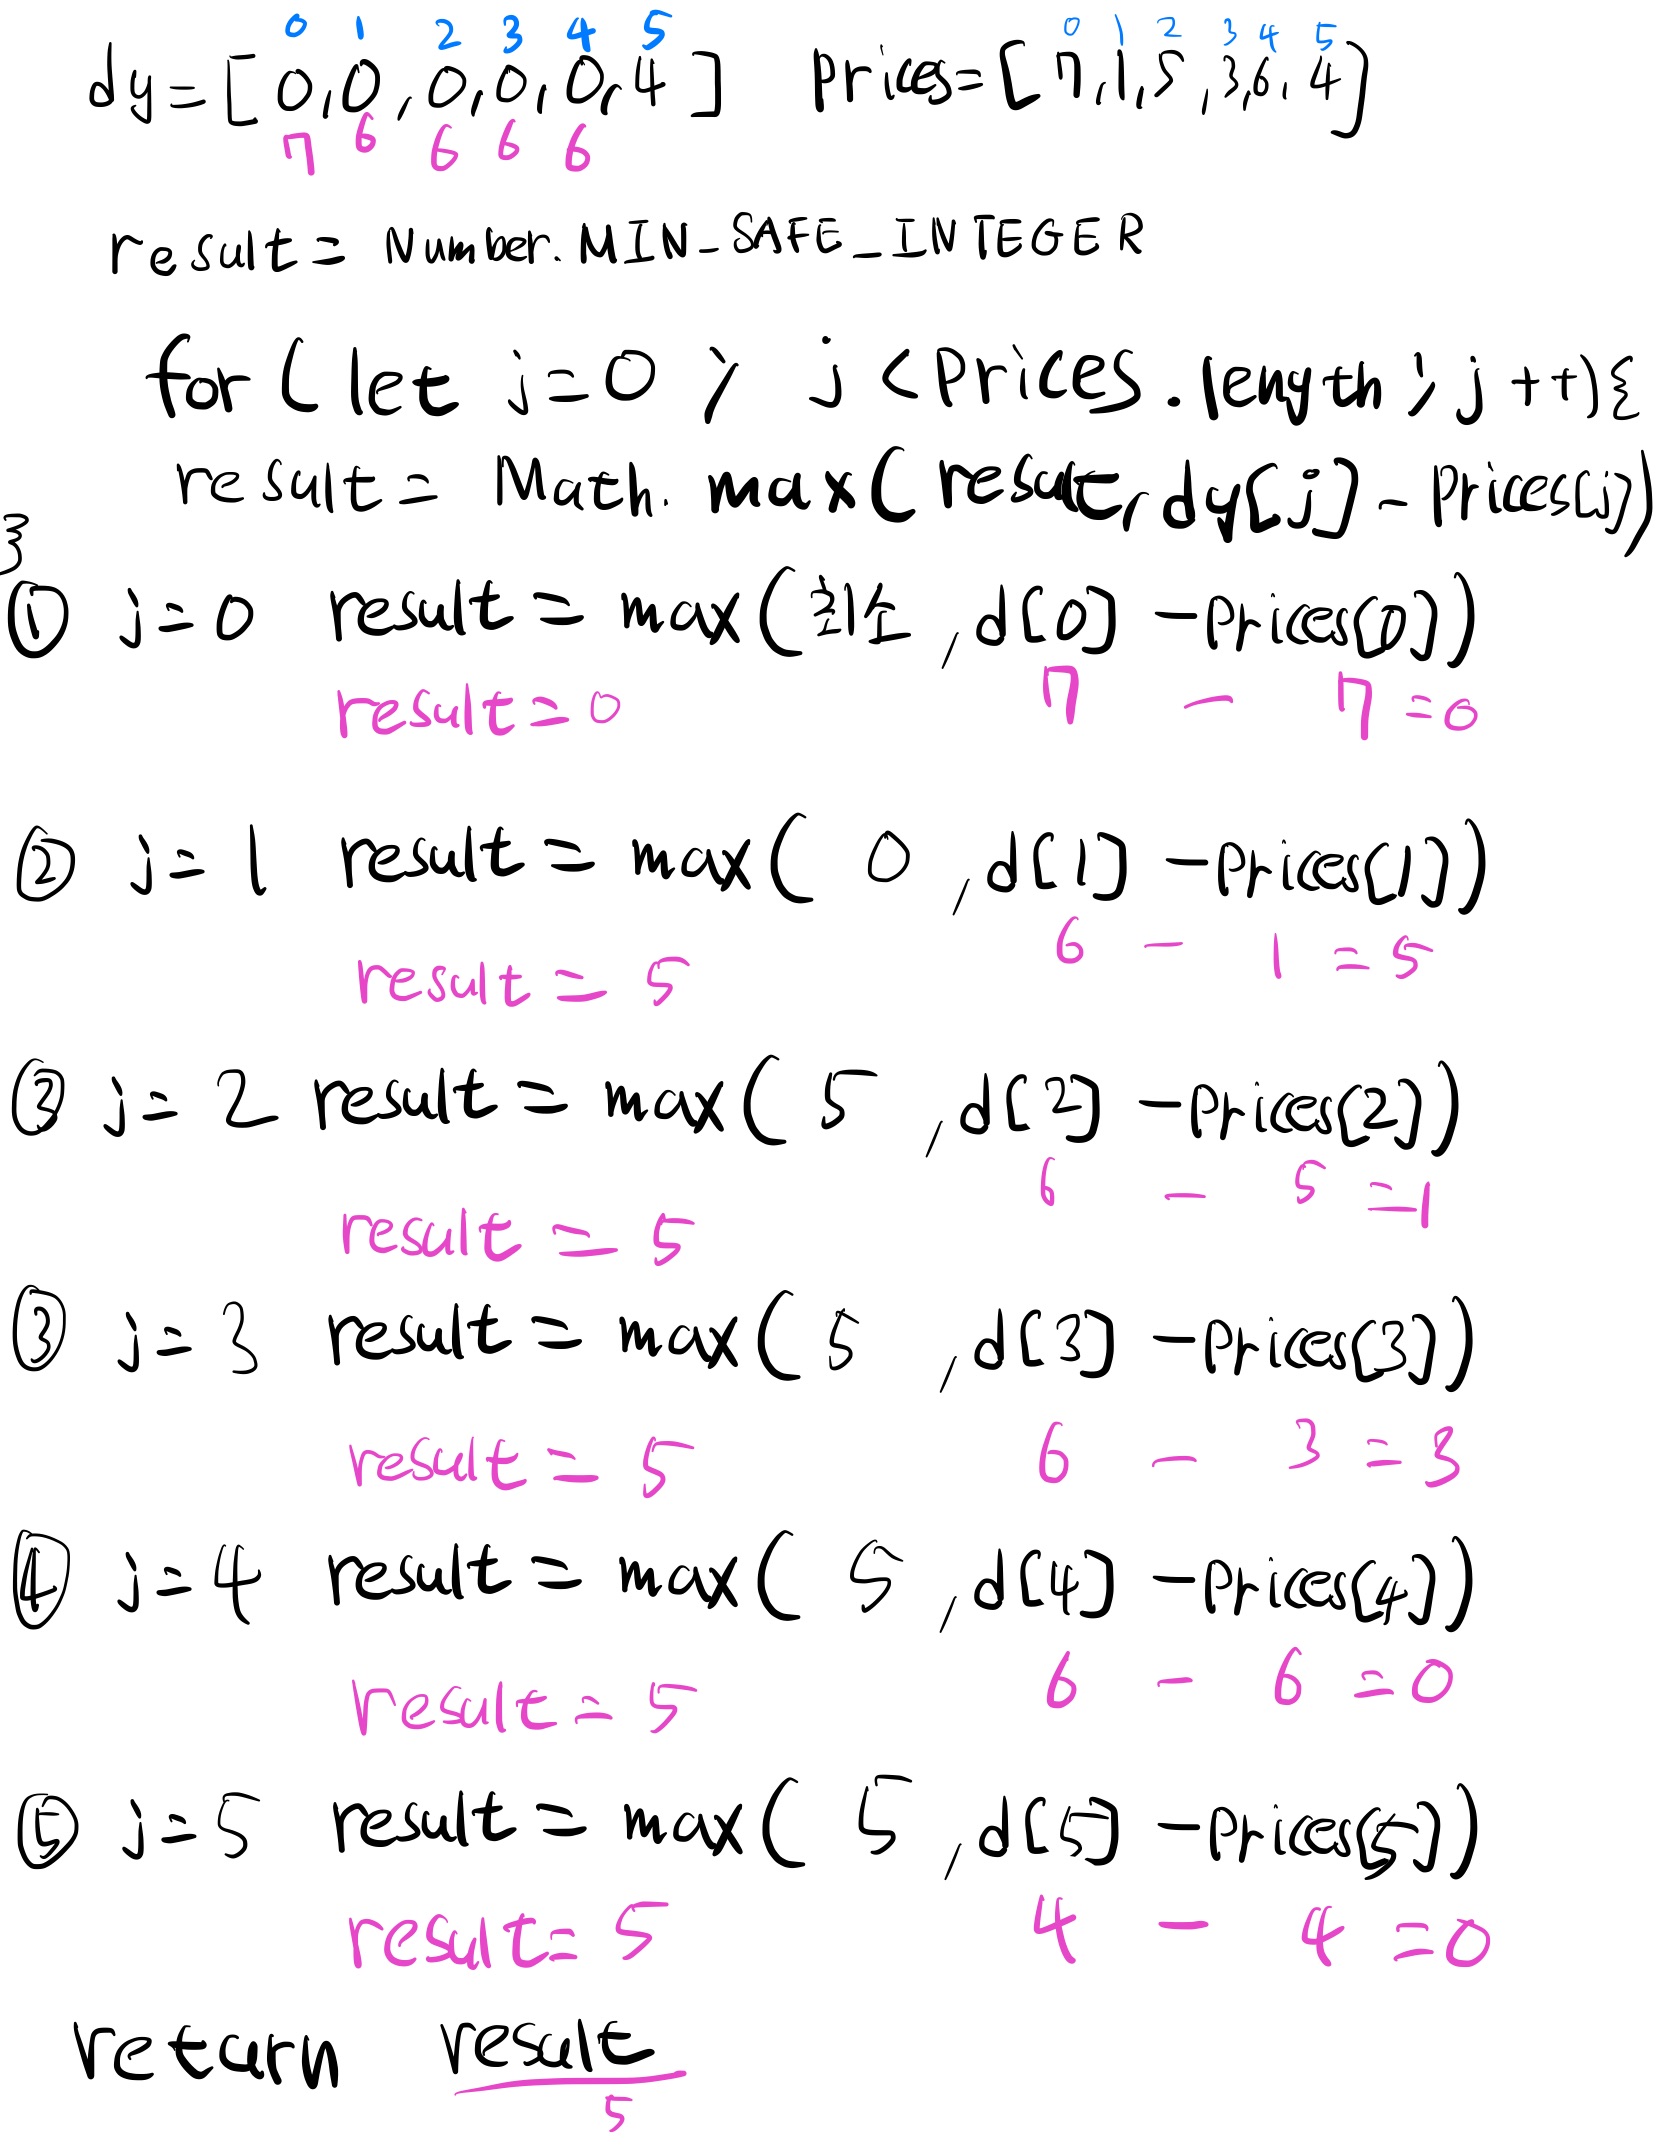 0 1 2 3 4 5 0 1 2 3 4 5
dy=[0,0,0,0,0,4] prices=[7,1,5,3,6,4]
7 6 6 6 6
result= Number.MIN_SAFE_INTEGER
for(let j=0; j<prices.length; j++){
result= Math.max(result,dy[j]-prices[j])
}
① j=0 result=max(최소,d[0]-prices[0])
result=0 7-7=0
② j=1 result=max(0,d[1]-prices[1])
6-1=5
result=5
③ j=2 result=max(5,d[2]-prices[2])
6-5=1
result=5
③ j=3 result=max(5,d[3]-prices[3])
result=5 6-3=3
④ j=4 result=max(5,d[4]-prices[4])
result=5 6-6=0
⑤ j=5 result=max(5,d[5]-prices[5])
result=5 4-4=0
return result
5